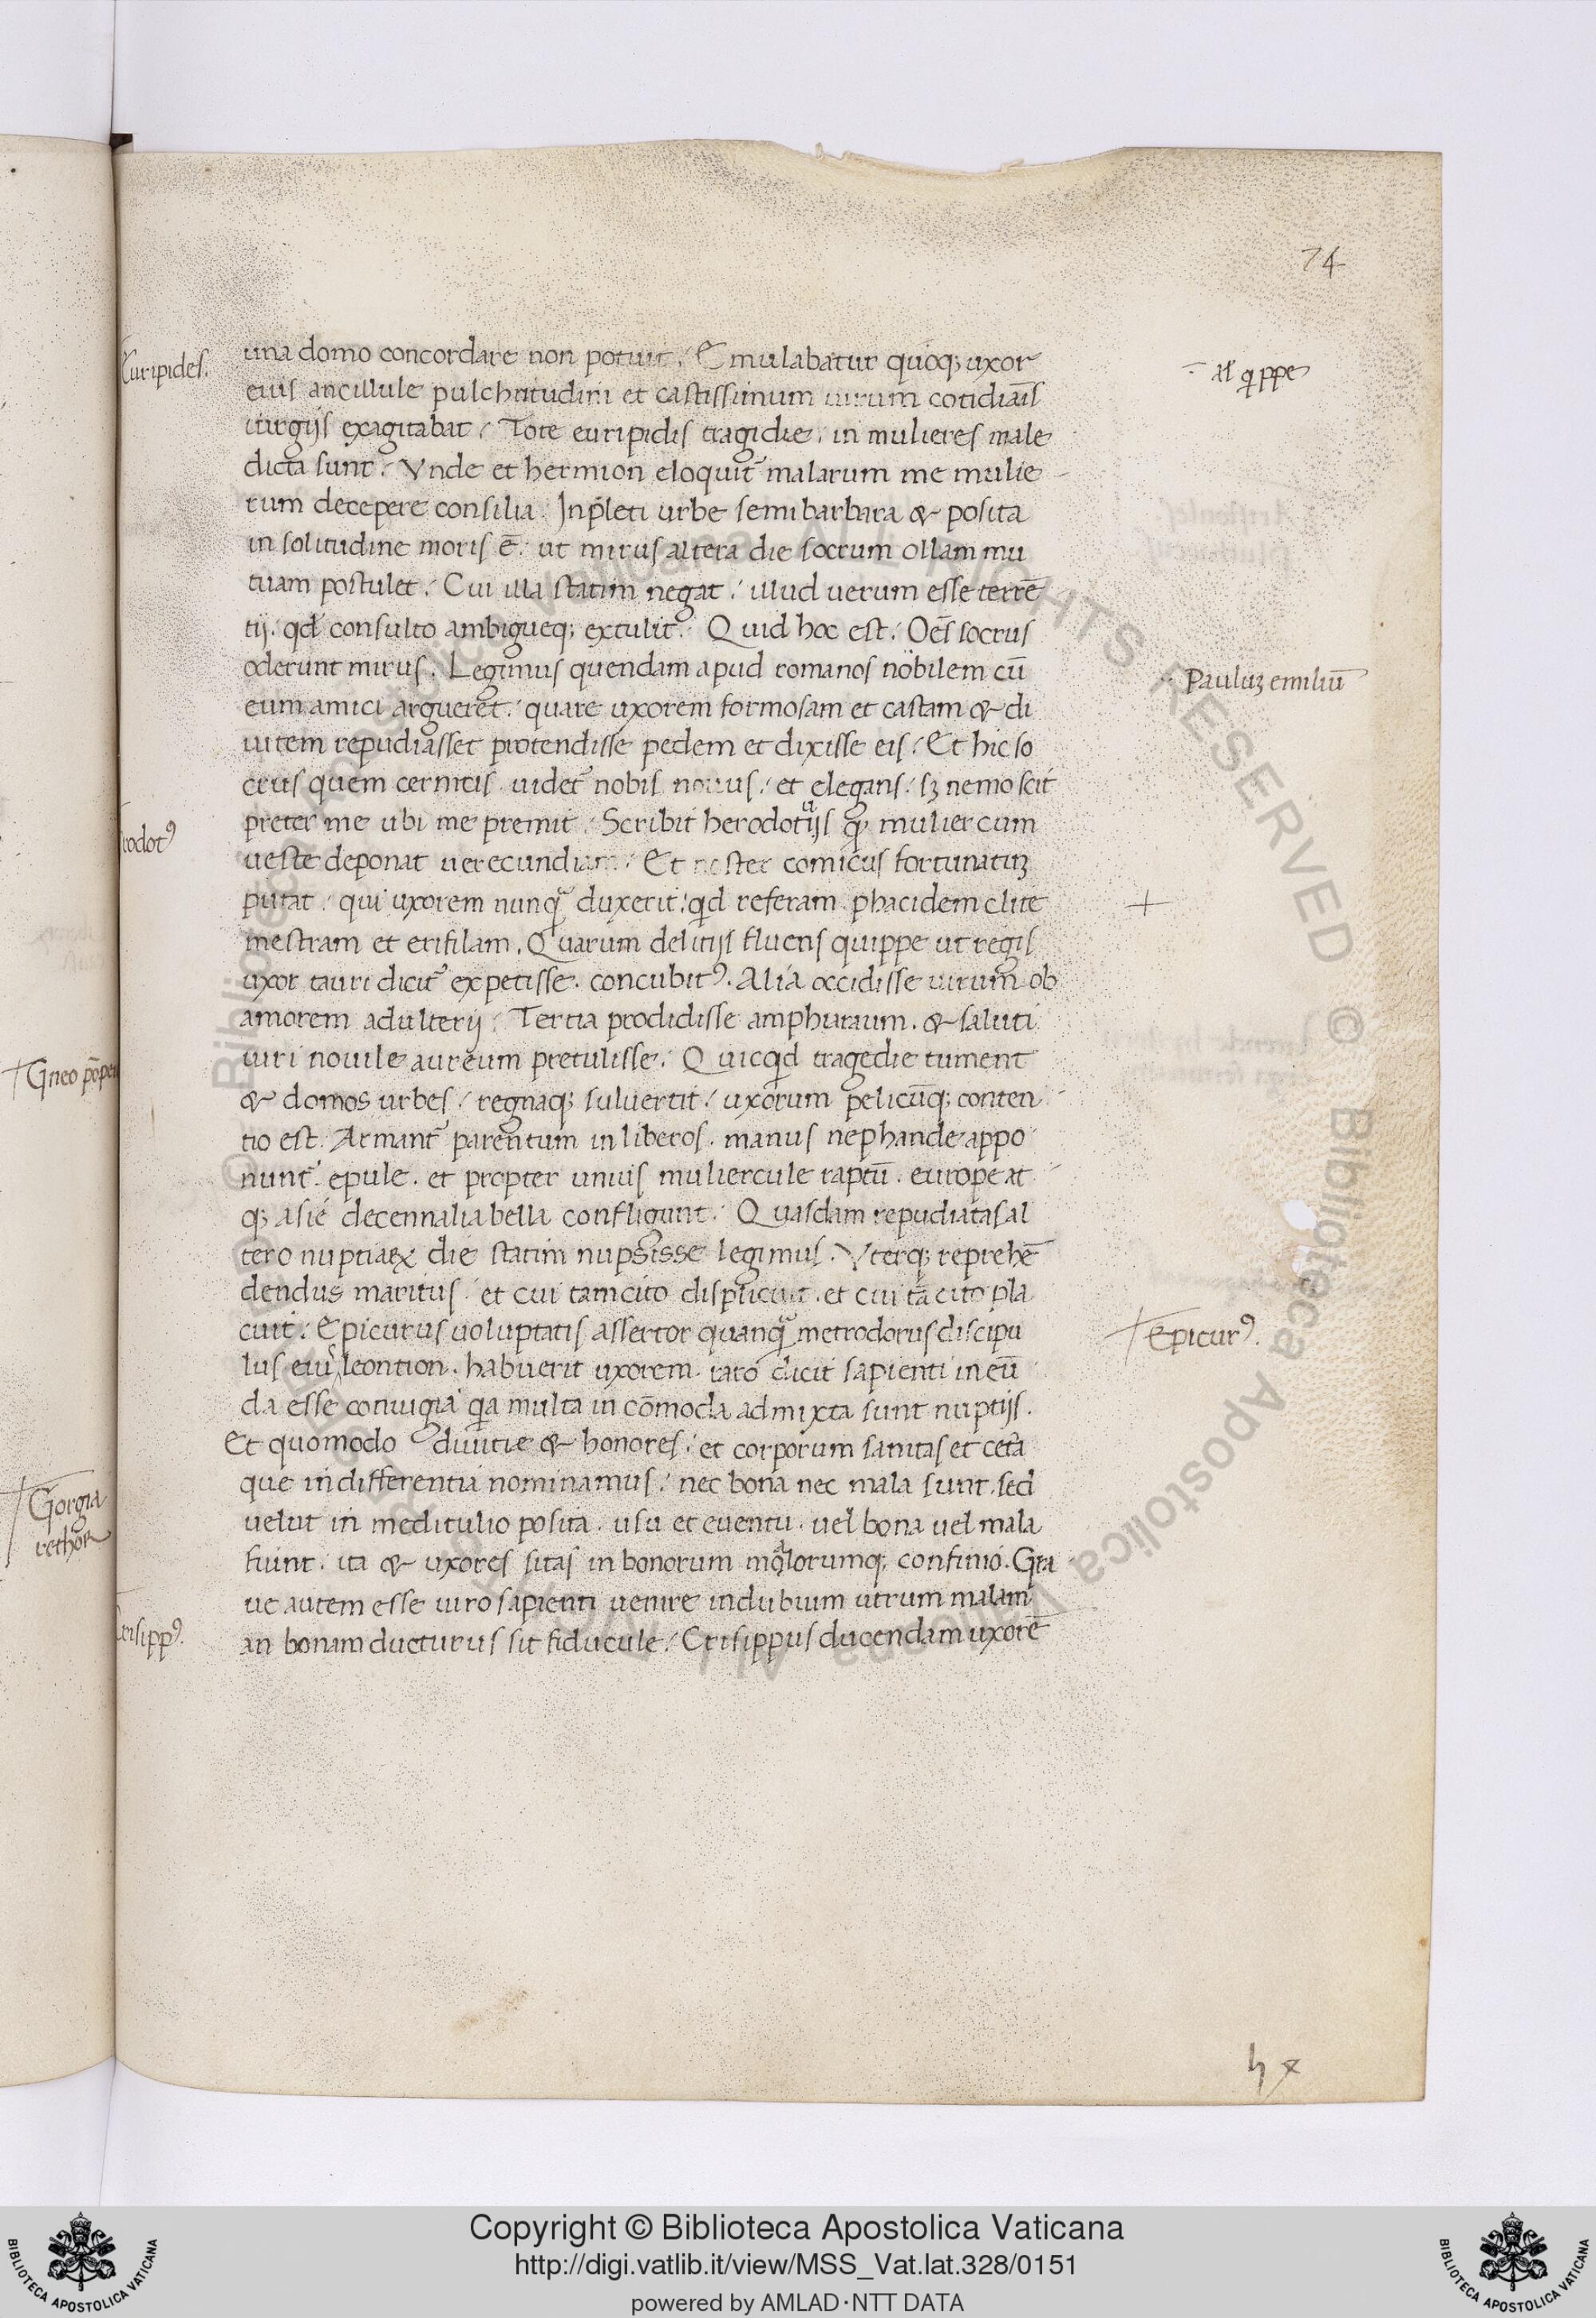 74
Euripides.
una domo concordare non potuit. Emulabatur quoq; uxor
eius ancillule pulchritudini et castissimum uirum cotidiaīs
iurgijs exagitabat. Tote euripidis tragidie. in mulieres male
dicta sunt. Vnde et hermion eloquit̃ malarum me mulie
rum decepere consilia. In p̄leti urbe semibarbara & posita
in solitudine moris ē. ut nurus altera die socrum ollam mu
tuam postulet. Cui illa statim negat. illud uerum esse terrē
tij. qd̄ consulto ambigueq; extulit. Quid hoc est. Oēs socrus
oderunt nurus. Legimus quendam apud romanos nobilem cū
eum amici arguerēt. quare uxorem formosam et castam & di
uitem repudiasset protendisse pedem et dixisse eis. Et hic so
ccus quem cernitis uidet̃ nobis nouus. et elegans. sꝫ nemo scit
preter me ubi me premit. Scribit herodotus qͥ mulier cum
ueste deponat uerecundiam. Et noster comicus fortunatuꝫ
putat. qui uxorem nunqͣ duxerit. qͥd referam phacidem clite
mestram et erifilam. Quarum delitijs fluens quippe ut regis
uxor tauri dicit̃ expetisse. concubitꝰ. Alia occidisse uirum ob
amorem adulterij. Tertia prodidisse amphiaraum. & saluti
uiri nouile aureum pretulisse. Quicqͥd tragedie tument
& domos urbes. regnaq; suluertit. uxorum pelicūq; conten
tio est. Armant̃ parentum in liberos. manus nephande appo
nunt̃ epule. et propter unius muliercule raptū. europe at
q; asie decennalia bella confligunt. Quasdam repudiatas al
tero nuptiaꝝ die statim nupsisse legimus. Vterq; reprehē
dendus maritus. et cui tam cito displicuit. et cui tā cito pla
cuit. Epicurus uoluptatis assertor quanqͣ metrodorus discipu
lus eius leontion. habuerit uxorem. raro dicit sapienti ineū
da esse coniugia qͥa multa in cōmoda admixta sunt nuptijs.
Et quomodo diuitie & honores. et corporum sanitas et cet̃a
que indifferentia nominamus. nec bona nec mala sunt. sed
uelut in meditulio posita. usu et euentu. uel bona uel mala
fiunt. ita & uxores sitas in bonorum malorumq; confinio. Gra
ue autem esse uiro sapienti uenire in dubium utrum malam
an bonam ducturus sit fiducule. Crisippus ducendam uxorē
al̄ qͥppe
Pauluꝫ emiliū
Epicurꝰ.
Gorgia
rethor
Copyright © Biblioteca Apostolica Vaticana
http://digi.vatlib.it/view/MSS_Vat.lat.328/0151
powered by AMLAD·NTT DATA
BIBLIOTECA APOSTOLICA VATICANA
BIBLIOTECA APOSTOLICA VATICANA